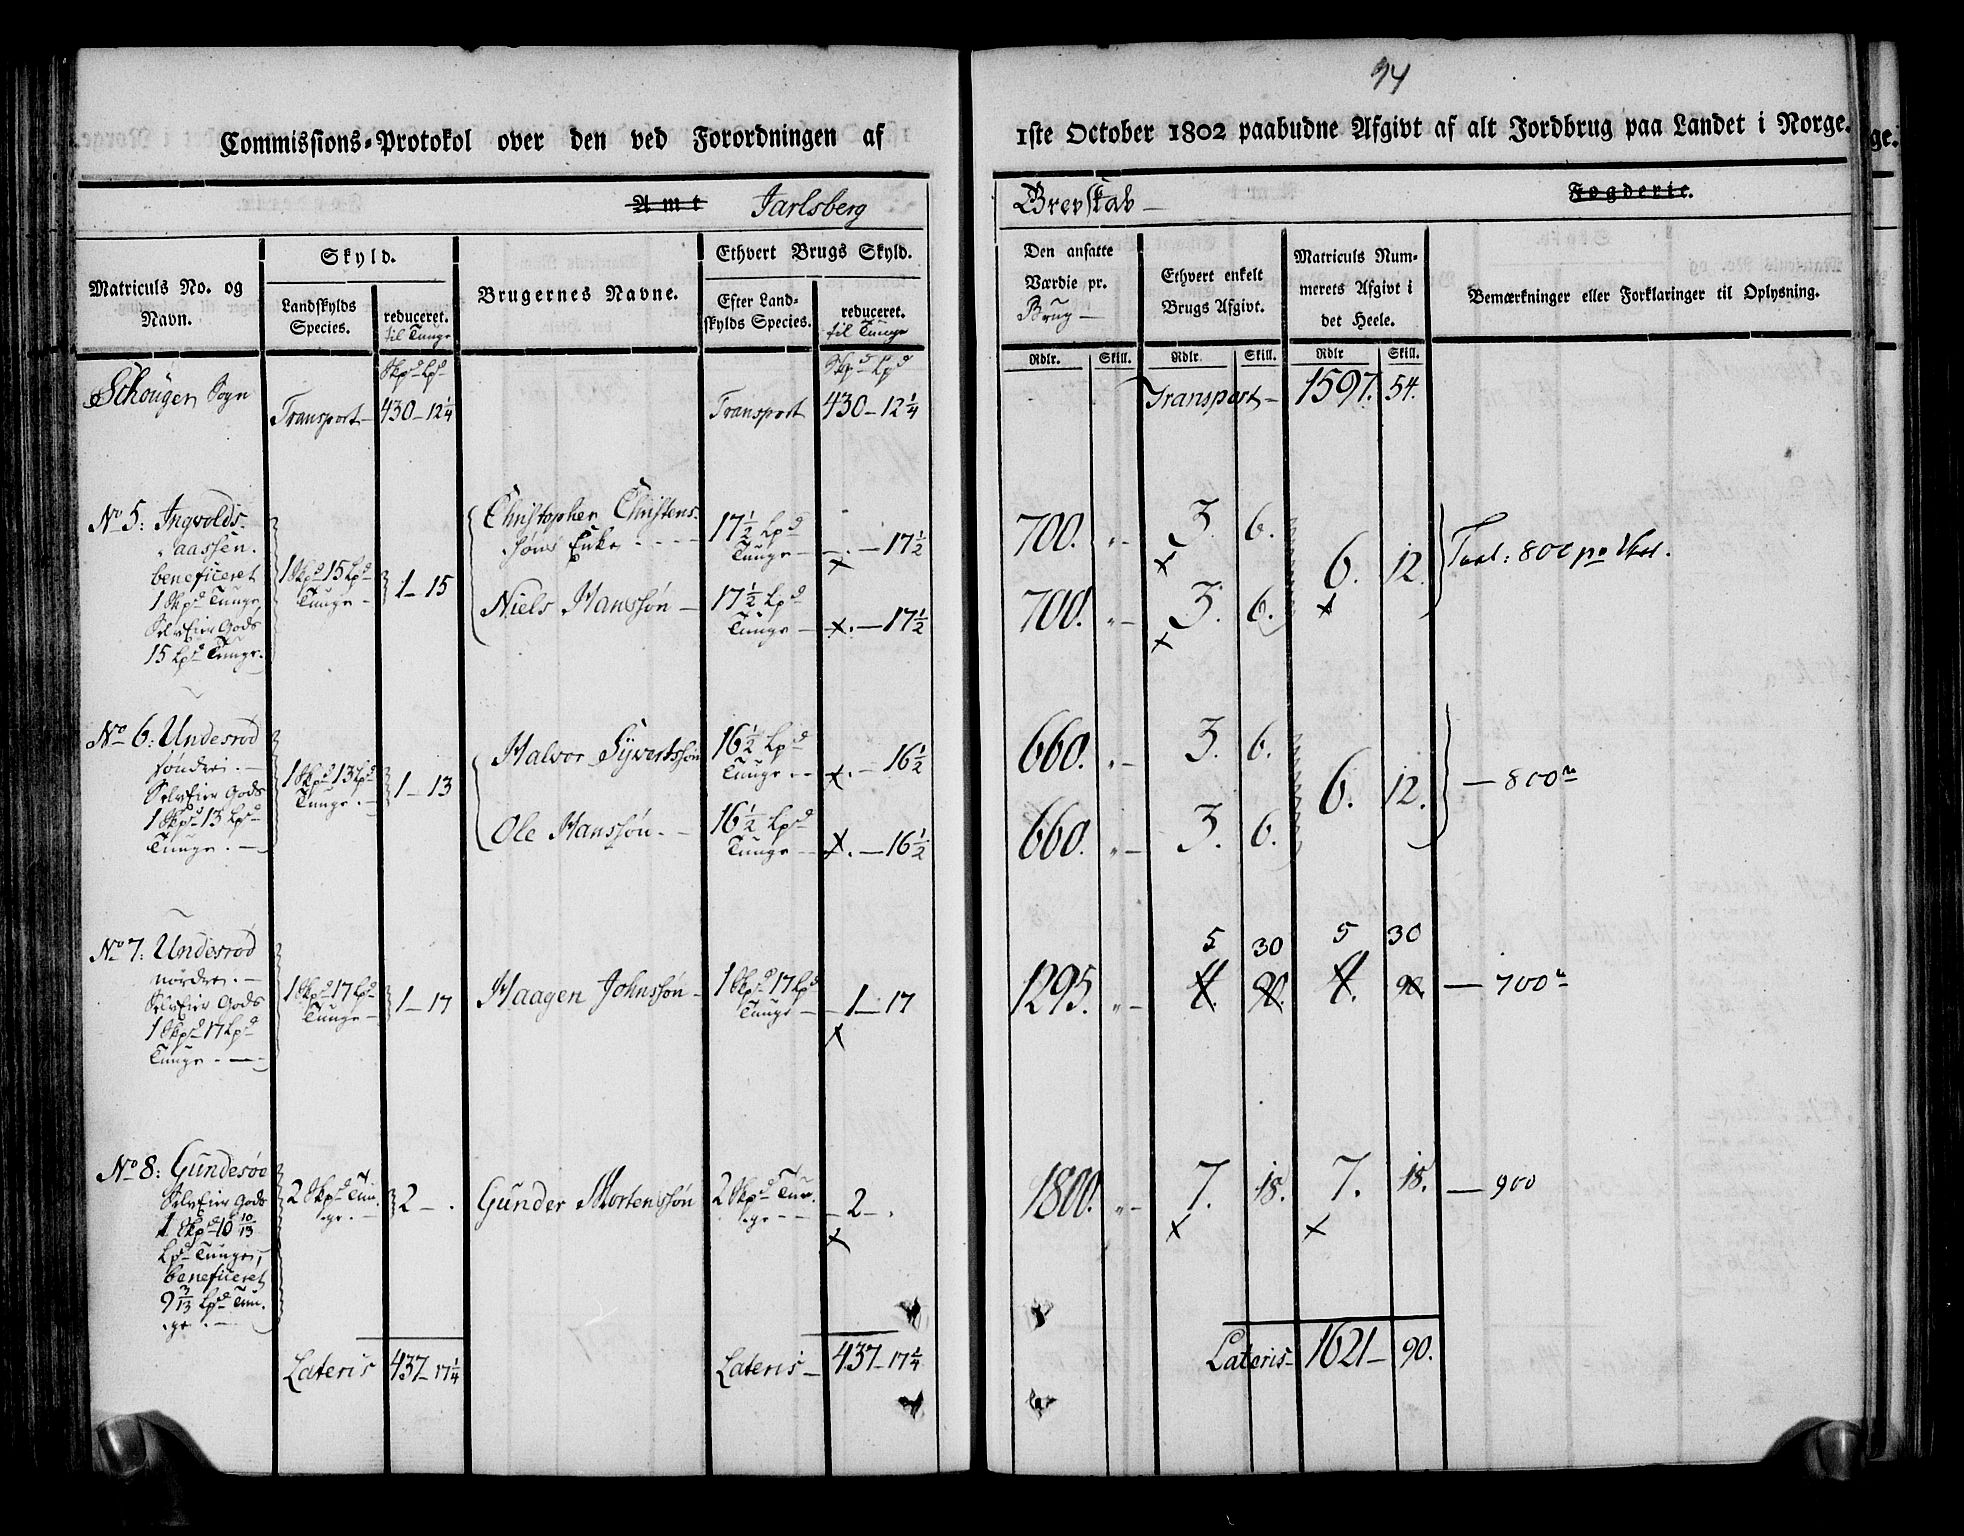 94
Commissions-Protokol over den ved Forordningen af
1ste October 1802 paabudne Afgivt af alt Jordbrug paa Landet i Norge.
Amt Jarlsberg
Grevskab Fogderie.
Matriculs No. og Navn.
Skyld.
Landskylds Species.
reduceret. til Tunge
Brugernes Navne.
Ethvert Brugs Skyld.
Efter Landskylds Species.
reduceret. til Tunge
Den ansatte Værdie pr. Brug
Ethvert enkelt Brugs Afgivt.
Matriculs Nummerets Afgivt i det Heele.
Bemærkninger eller Forklaringer til Oplysning.
Rdlr. Skill. Rdlr. Skill. Rdlr Skill.
Skpd Lpd Skpd Lpd
Schouger Sogn Transport 430 - 12 1/4 Transport 430 - 12 1/4 Transport 1597. 54.
No 5: Ingvolds-
aassen.
beneficeret
1 Skpd Tunge,
SelvEier Gods
15 Lpd Tunge.
1 Skpd 15 Lpd
Tunge
1 - 15
Christopher Christens-
søns Enke
17 1/2 Lpd
Tunge
17 1/2
700. 3. 6.
Niels Hanssøn
17 1/2 Lpd
Tunge
17 1/2
700. 3. 6.
6. 12.
No 6: Undesrød
søndre.
SelvEier Gods
1 Skpd 13 Lpd
Tunge.
1 Skpd 13 Lpd
Tunge.
1 - 13
Halvor Syvertssøn
16 1/2 Lpd
Tunge
16 1/2
660. 3. 6.
Ole Hanssøn.
16 1/2 Lpd
Tunge
16 1/2
660. 3. 6.
6. 12.
800
No 7: Undesrød
nordre.
SelvEier Gods
1 Skpd 17 Lpd
Tunge.
1 Skpd 17 Lpd
Tunge
1 - 17
Haagen Johnssøn
1 Skpd 17 Lpd
Tunge
1 - 17
1295.
5 30 5 30
90. 90.
700
No 8: Gundesøe
SelvEier Gods
1 Skpd 10 10/13
Lpd Tunge,
beneficeret
9 3/13 Lpd Tun-
ge.
2 Skpd Tun-
ge.
2 -
Gunder Mortenssøn
2 Skpd Tun-
ge
2 -
1800. 7. 18. 7. 18.
900
Lateris 437 - 17 1/4 Lateris 437 - 17 1/4 Lateris 1621 - 90.